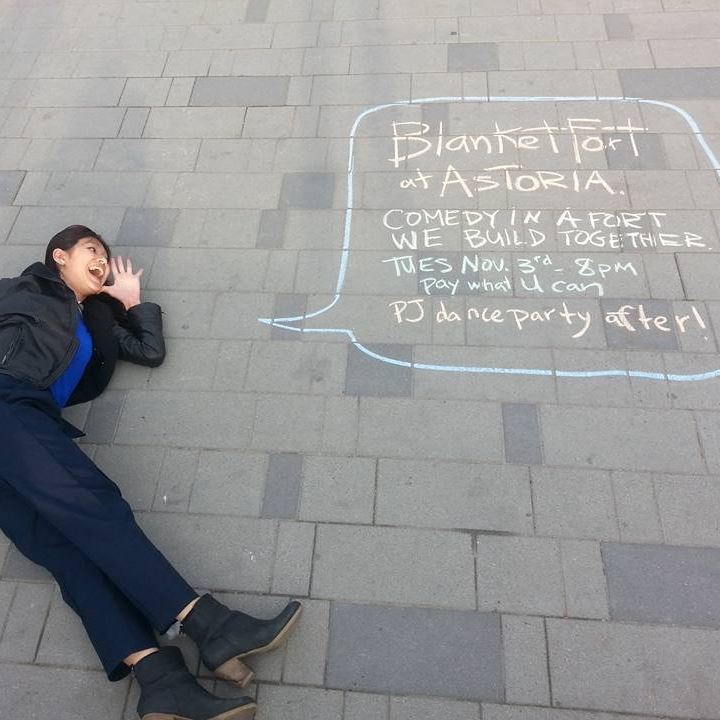 Blanket Fort
at ASTORIA.
COMEDY IN A FORT
WE BUILD TOGETHER.
TUES NOV. 3rd - 8PM
Pay what U can
PJ dance party after!